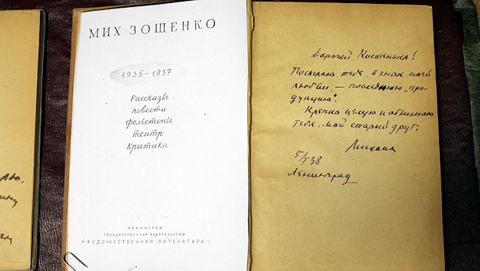 МИХ ЗОЩЕНКО
1935-1937
Рассказы
повести
фельетоны
театр
критика
ЛЕНИНГРАД
ГОСУДАРСТВЕННОЕ ИЗДАТЕЛЬСТВО
«ХУДОЖЕСТВЕННАЯ ЛИТЕРАТУРА»
Дорогой
Посылаю тебе, в знак моей
любви, —
дукцию!
Крепко целую и обнимаю
тебя, мой старый друг.
Михаил
5/X 38
Ленинград